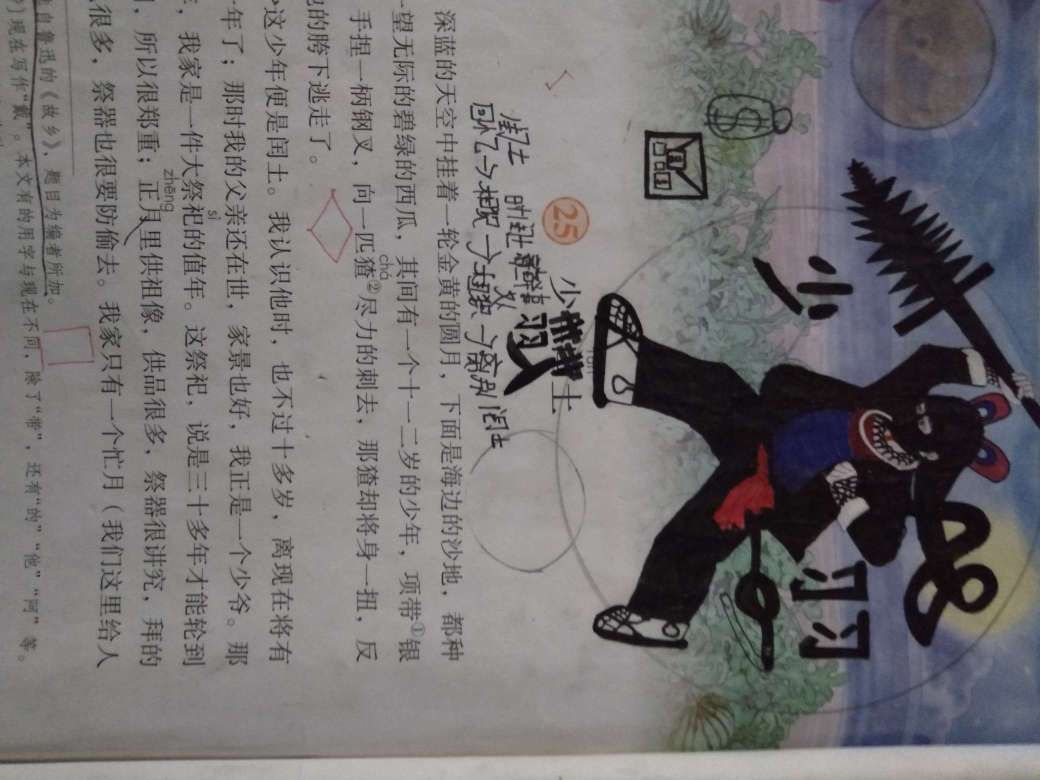 少
刃刃
25
少
土
闰土
回忆→相识→相处→离别闰土
深蓝的天空中挂着一轮金黄的圆月，下面是海边的沙地，都种
望无际的碧绿的西瓜，其间有一个十一二岁的少年，项带①银
chá
手捏一柄钢叉，向一匹猹②尽力的刺去，那猹却将身一扭，反
的胯下逃走了。
这少年便是闰土。我认识他时，也不过十多岁，离现在将有
年了；那时我的父亲还在世，家景也好，我正是一个少爷。那
sì
，我家是一件大祭祀的值年。这祭祀，说是三十多年才能轮到
zhēng
，所以很郑重；正月里供祖像，供品很多，祭器很讲究，拜的
很多，祭器也很要防偷去。我家只有一个忙月（我们这里给人
自鲁迅的《故乡》，题目为编者所加。
现在写作“戴”。本文有的用字与现在不同，除了“带”，还有“的”“他”“阿”等。